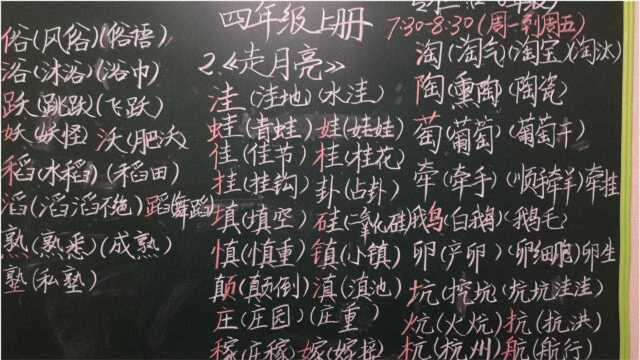 四年级上册
7:30-8:30(周一到周五)
2.《走月亮》
俗(风俗)(俗语)
浴(沐浴)(浴巾)
跃(跳跃)(飞跃)
妖(妖怪) 沃(肥沃)
稻(水稻)(稻田)
滔(滔滔不绝)蹈(舞蹈)
熟(熟悉)(成熟)
塾(私塾)
洼(洼地)(水洼)
蛙(青蛙) 娃(娃娃)
佳(佳节) 桂(桂花)
挂(挂钩) 卦(占卦)
填(填空) 硅(二氧化硅)
慎(慎重) 镇(小镇)
颠(颠倒) 滇(滇池)
庄(庄园)(庄重)
稼(庄稼) 嫁(嫁接)
淘(淘气)(淘宝)(淘汰)
陶(熏陶)(陶瓷)
萄(葡萄)(葡萄干)
牵(牵手)(顺手牵羊)牵挂
鹅(白鹅)(鹅毛)
卵(产卵)(卵细胞)卵生
坑(挖坑)(坑坑洼洼)
炕(火炕) 抗(抗洪)
杭(杭州)航(航行)